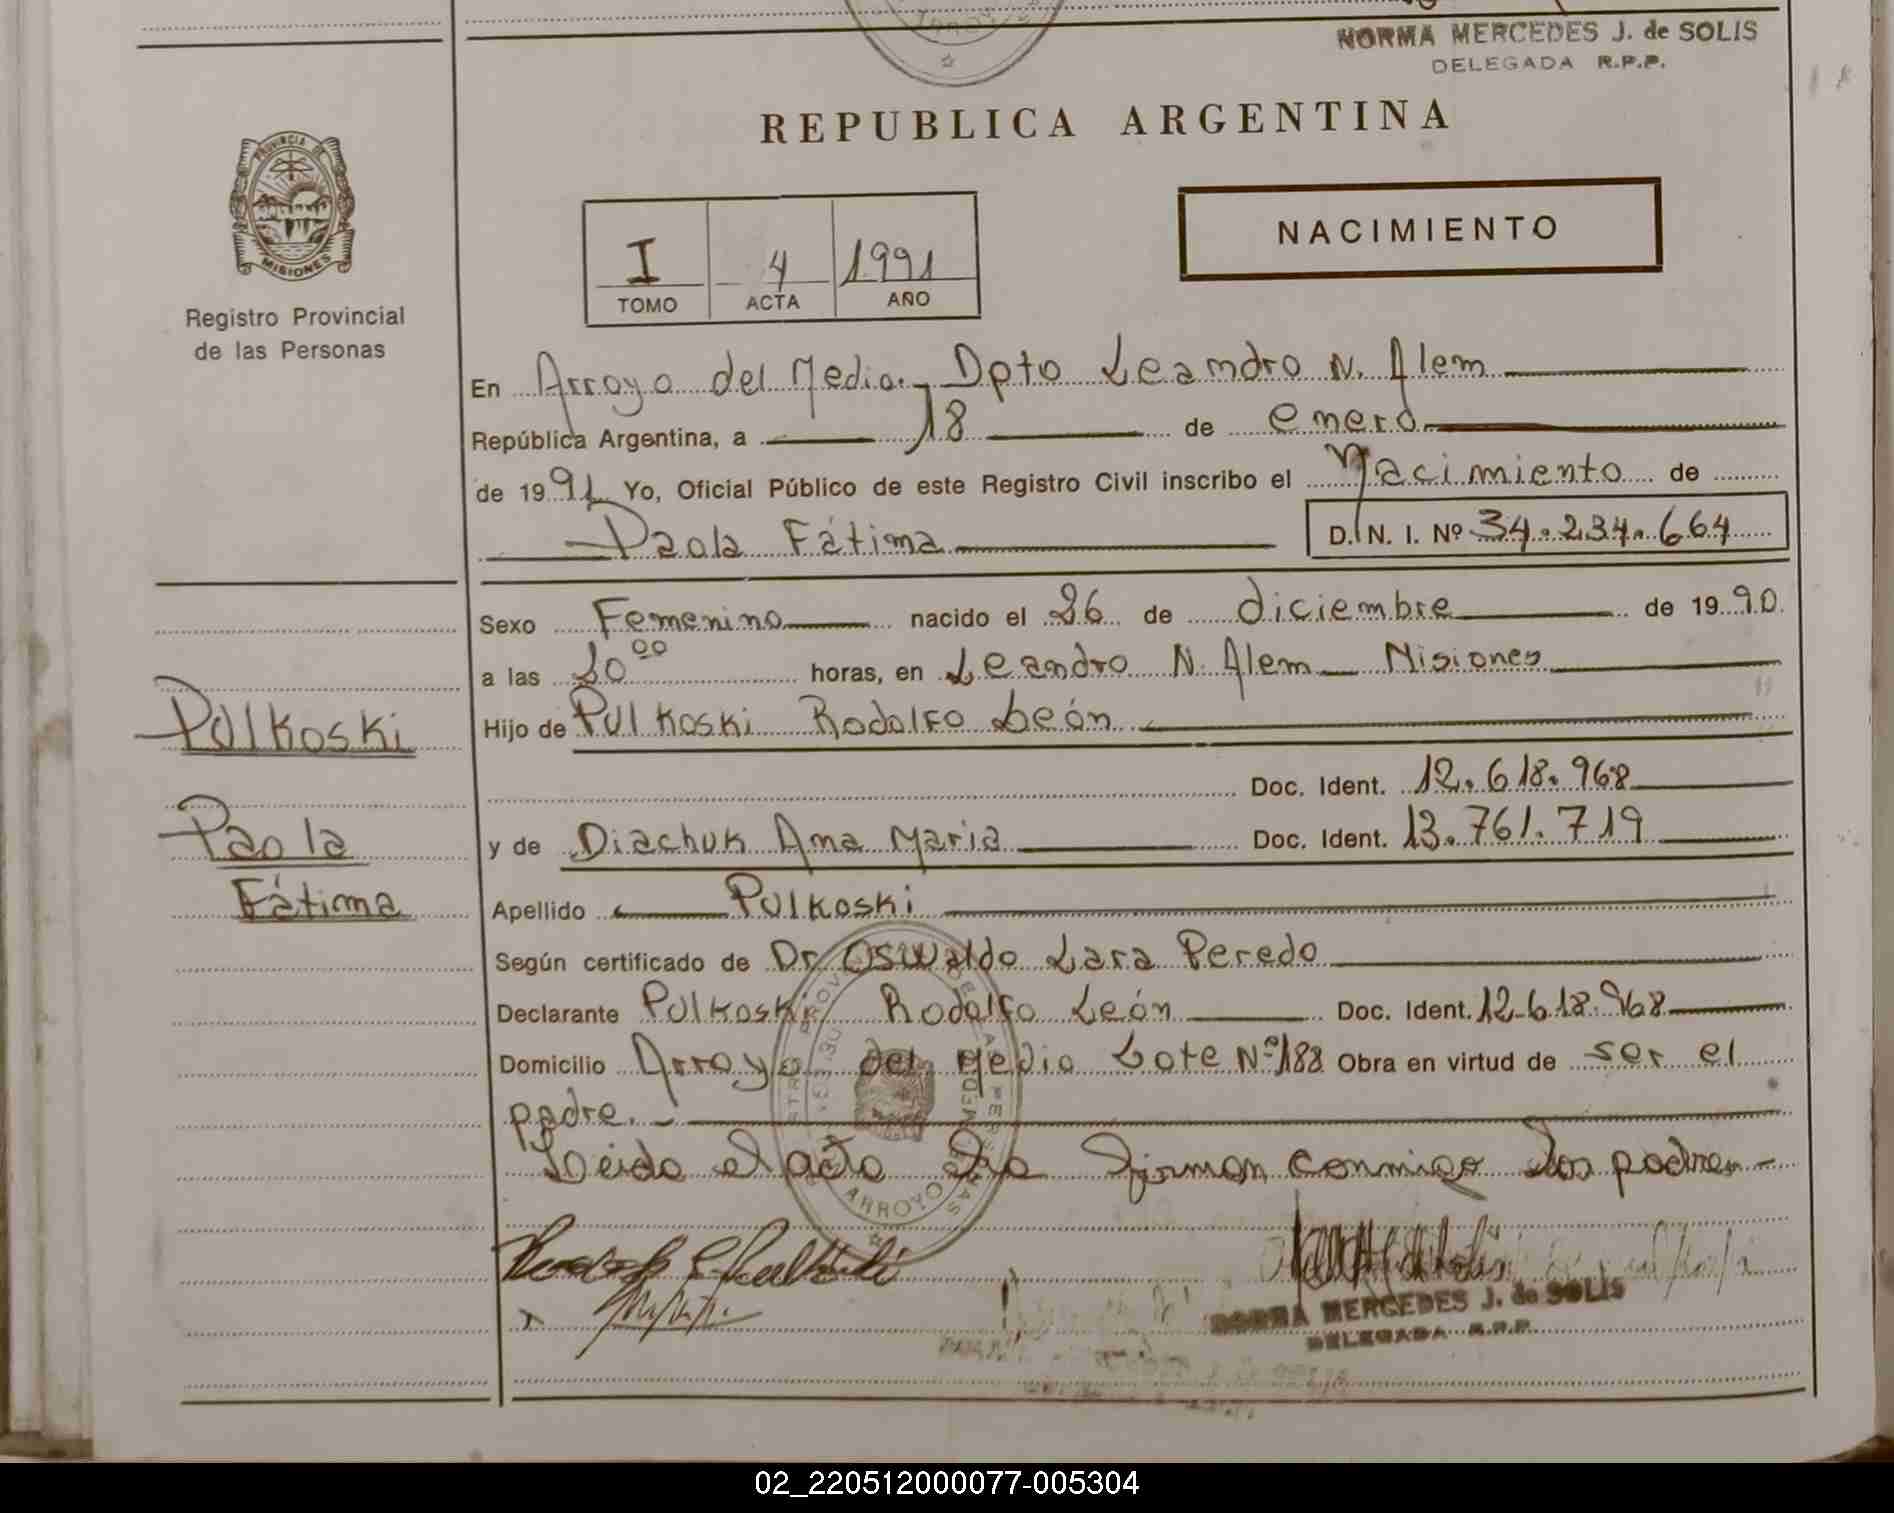 NORMA MERCEDES J. de SOLIS
DELEGADA R.P.P.
REPUBLICA ARGENTINA
PROVINCIA DE
MISIONES
Registro Provincial
de las Personas
I 4 1991
TOMO ACTA AÑO
NACIMIENTO
En Arroyo del Medio. Dpto Leandro N. Alem
República Argentina, a 18 de enero
de 1991 Yo, Oficial Público de este Registro Civil inscribo el Nacimiento de
Paola Fátima D. N. I. Nº 34.234.664
Sexo Femenino nacido el 26 de diciembre de 1990
a las 20 00 horas, en Leandro N. Alem Misiones
Hijo de Pulkoski Rodolfo León
Doc. Ident. 12.618.968
y de Diachuk Ana Maria Doc. Ident. 13.761.719
Apellido Pulkoski
Según certificado de Dr Oswaldo Lara Peredo
Declarante Pulkoski Rodolfo León Doc. Ident. 12.618.968
Domicilio Arroyo del Medio Lote Nº 188 Obra en virtud de ser el
padre.
Leida el acta la firman conmigo los padres
Pulkoski
Paola
Fátima
ARROYO
NORMA MERCEDES J. de SOLIS
DELEGADA R.P.P.
02_220512000077-005304